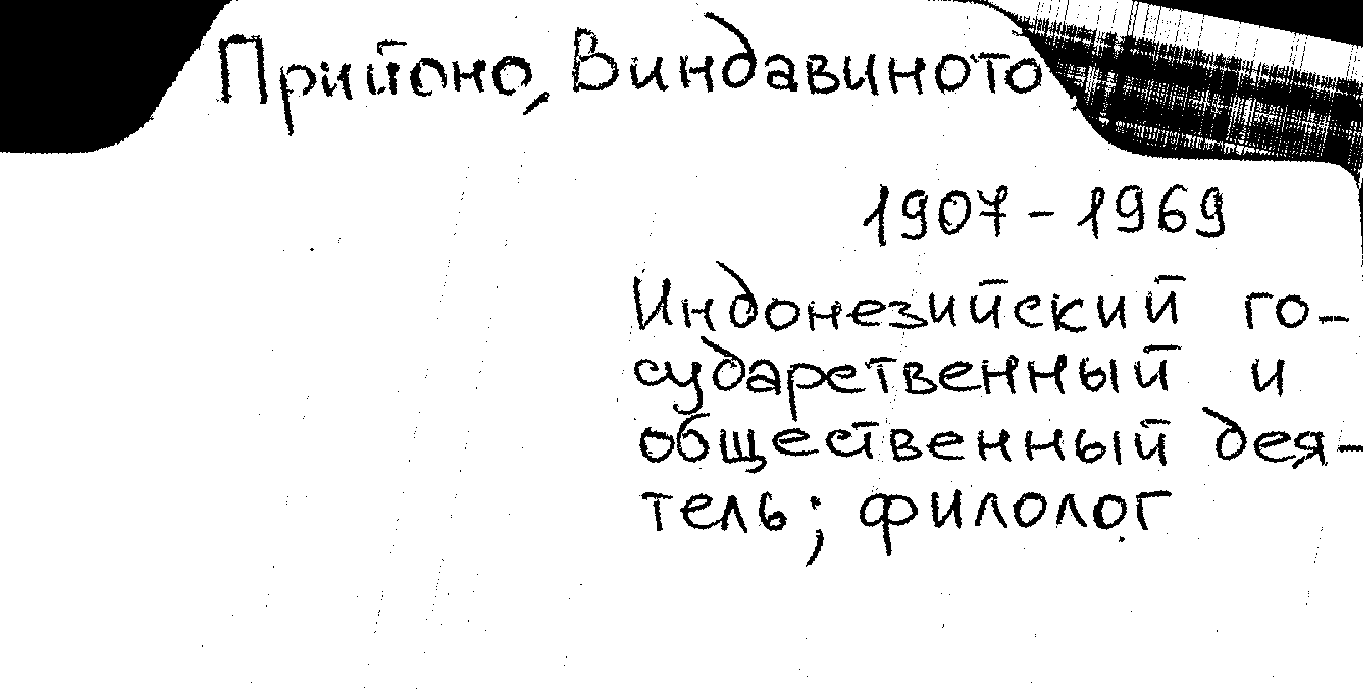 Прийоно, Виндавиното,
1907 - 1969
Индонезийский го-
сударственный и
общественный дея-
тель; филолог